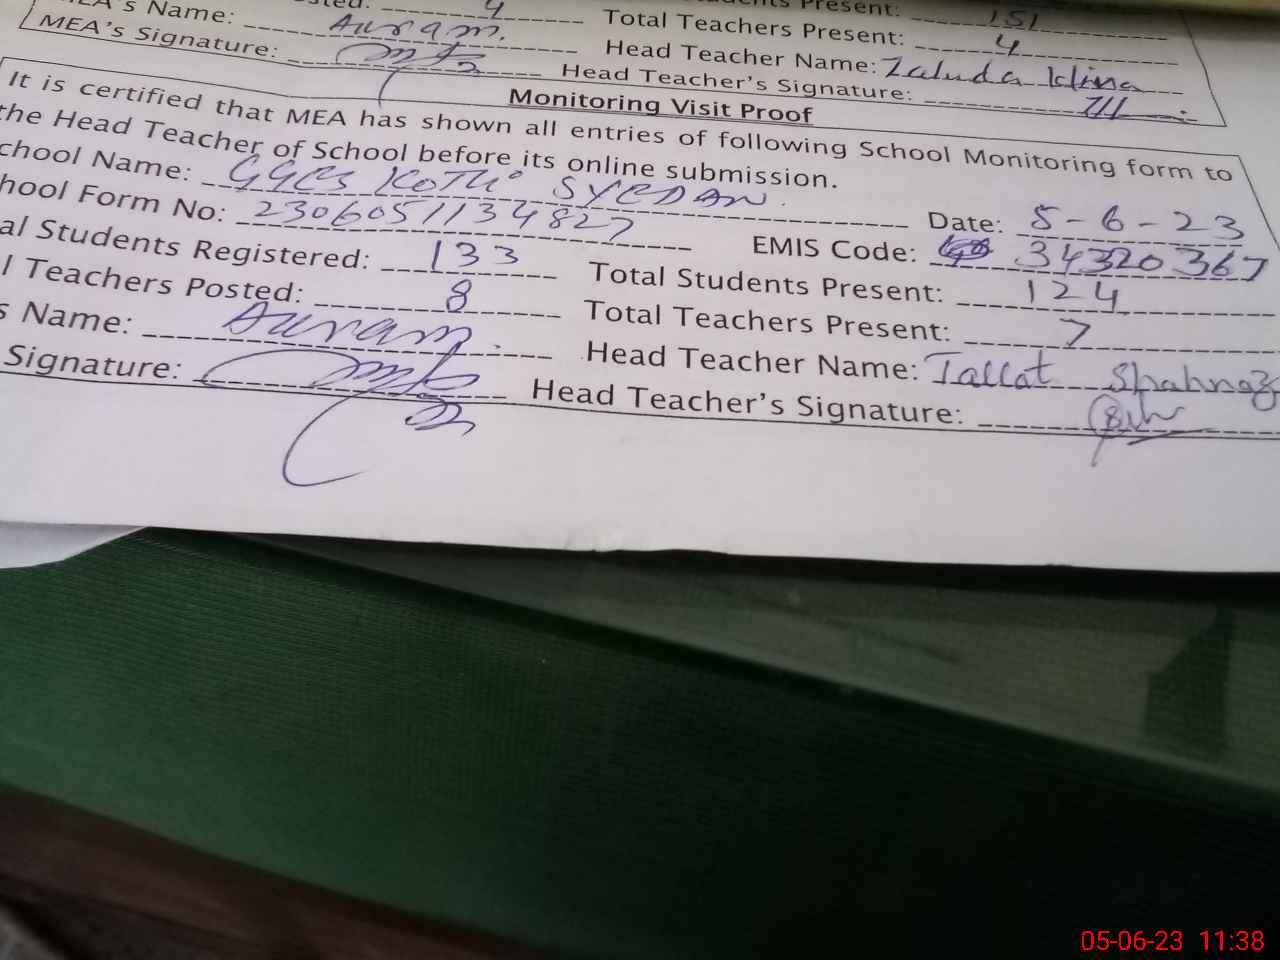 4 Present: 151
MEA's Name: Auram. Total Teachers Present: 4
MEA's Signature: Head Teacher Name:
Head Teacher's Signature:
Monitoring Visit Proof
It is certified that MEA has shown all entries of following School Monitoring form to
the Head Teacher of School before its online submission.
chool Name: GGES KOTLI SYEDAN. Date: 5-6-23
hool Form No: 2306051134827 EMIS Code: 34320367
al Students Registered: 133 Total Students Present: 124
l Teachers Posted: 8 Total Teachers Present: 7
s Name: Auram. Head Teacher Name: Tallat Shahnaz
Signature: Head Teacher's Signature:
05-06-23 11:38